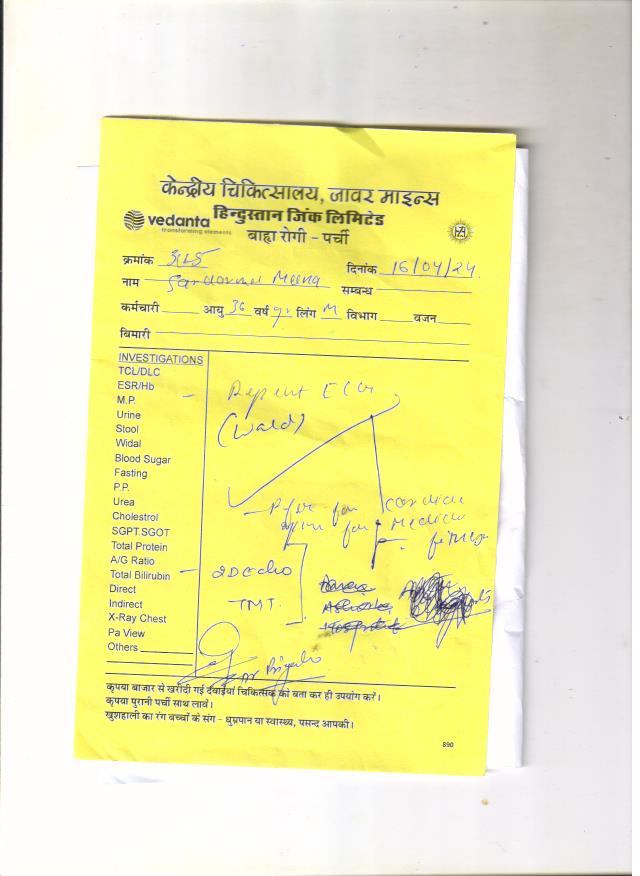 केन्द्रीय चिकित्सालय, जावर माइन्स
हिन्दुस्तान जिंक लिमिटेड
vedanta
transforming elements
बाह्य रोगी - पर्ची
क्रमांक
दिनांक 16/04/24
नाम Meena
सम्बन्ध
कर्मचारी आयु 36 वर्ष yr लिंग M विभाग वजन
बिमारी
INVESTIGATIONS
TCL/DLC
ESR/Hb
M.P.
Urine
Stool
Widal
Blood Sugar
Fasting
P.P.
Urea
Cholestrol
SGPT.SGOT
Total Protein
A/G Ratio
Total Bilirubin
Direct
Indirect
X-Ray Chest
Pa View
Others
Repeat ECG
(Ward)
for cardiac
for medical
fitness
2D Echo
TMT.
कृपया बाजार से खरीदी गई दवाईयां चिकित्सक को बता कर ही उपयोग करें।
कृपया पुरानी पर्ची साथ लावें।
खुशहाली का रंग बच्चों के संग - धुम्रपान या स्वास्थ्य, पसन्द आपकी।
890